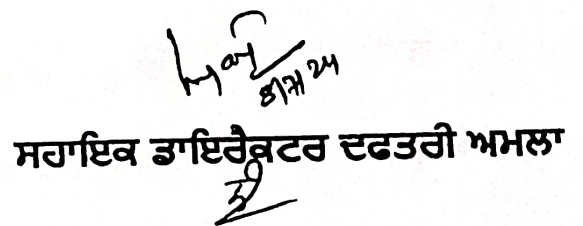 ਸਹਾਇਕ ਡਾਇਰੈਕਟਰ ਦਫਤਰੀ ਅਮਲਾ